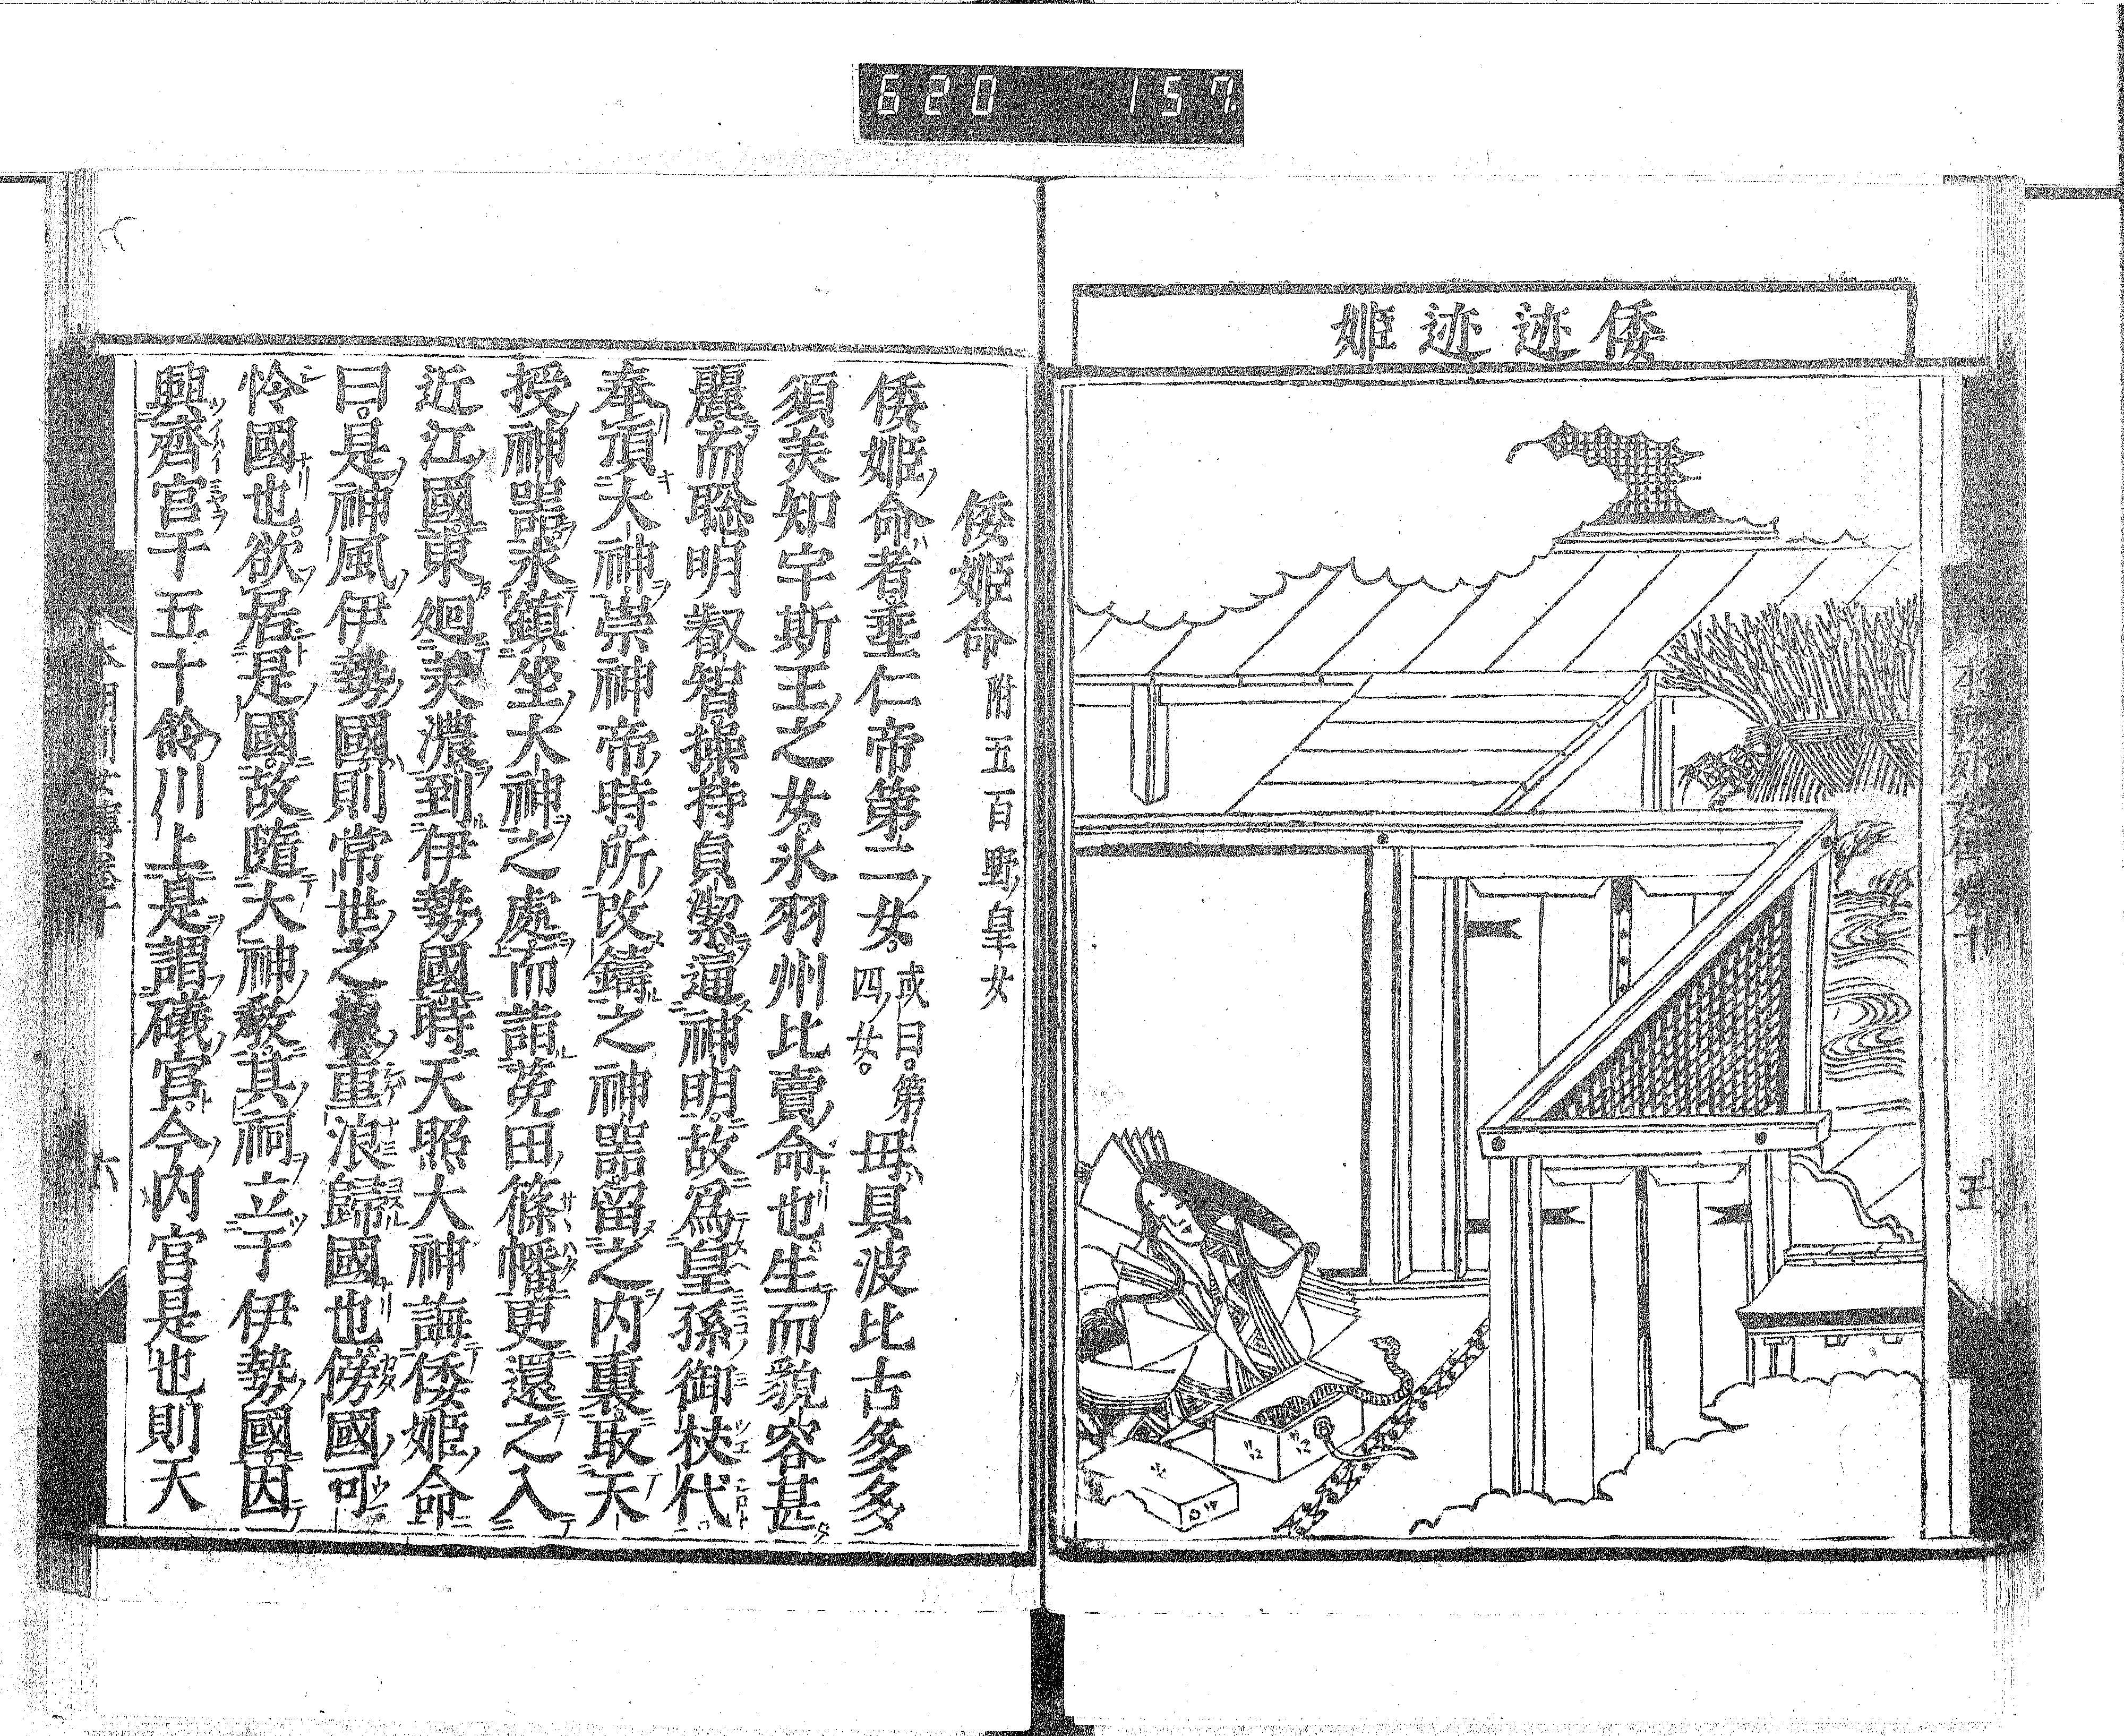 620 157
倭迹迹姫
本朝列女傳卷十
五
倭姫命 附五百野皇女
倭姫命者垂仁帝第二女。或曰。第四女。毋具波比古多多
須美知宇斯王之女。氷羽州比賣命也。生而貌容甚
麗。而聡明叡智。操持貞潔。逼神明。故爲皇孫御杖代
奉頂大神。崇神帝時。所改鑄之神噐。留之内裏。取天
授神噐。求鎮坐大神之處。而詣莬田篠幡。更還之入
近江國。東廻美濃。到伊勢國。時天照大神誨倭姫命
曰。是神風伊勢國。則常世之浪重浪歸國也。傍國可
怜國也。欲居是國。故隨大神敎。其祠立于伊勢國。因
興齊宮于五十鈴川上。是謂礒宮。今内宮是也。則天
六